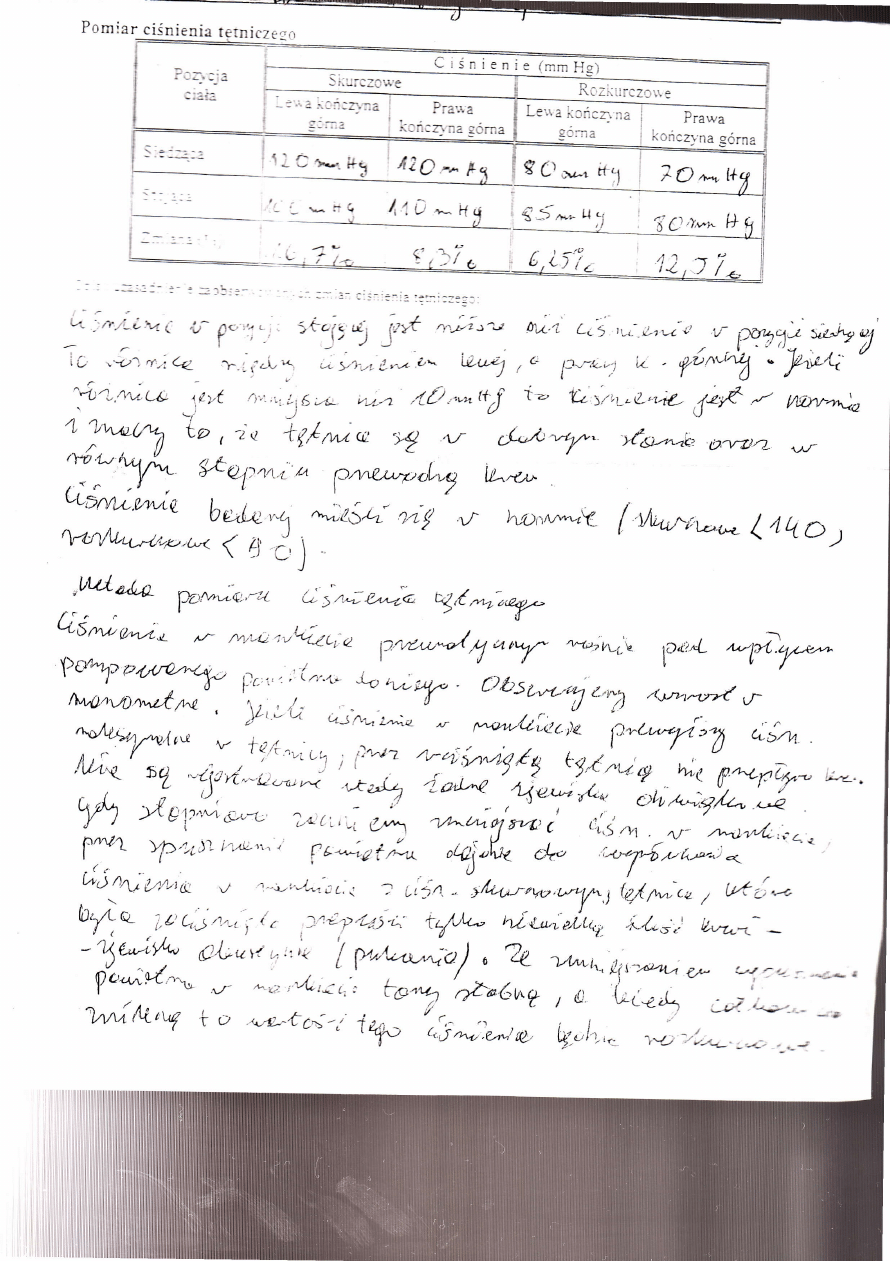 Pomiar ciśnienia tętniczego
Pozycja ciała
Ciśnienie (mm Hg)
Skurczowe
Rozkurczowe
Lewa kończyna górna
Prawa kończyna górna
Lewa kończyna górna
Prawa kończyna górna
Siedząca 120 mm Hg 120 mm Hg 80 mm Hg 70 mm Hg
Stojąca 100 mm Hg 110 mm Hg 85 mm Hg 80 mm Hg
Zmiana 16,7% 8,3% 6,25% 12,5%
uzasadnienie zaobserwowanych zmian ciśnienia tętniczego:
Ciśnienie w pozycji stojącej jest niższe niż ciśnienie w pozycji siedzącej
To różnica między ciśnieniem lewej, a prawej k. górnej. Jeżeli
różnica jest mniejsza niż 10 mmHg to ciśnienie jest w normie
i znaczy to, że tętnice są w dobrym stanie oraz w
równym stopniu przewodzą krew.
Ciśnienie badanej mieści się w normie (skurczowe < 140,
rozkurczowe < 90).
Metoda pomiaru ciśnienia tętniczego
Ciśnienie w mankiecie pneumatycznym rośnie pod wpływem
pompowanego powietrza do niego. Obserwujemy wzrost w
manometrze. Jeżeli ciśnienie w mankiecie przewyższy ciśn.
maksymalne w tętnicy, przez zaciśniętą tętnicę nie przepływa krew.
Nie są rejestrowane wtedy żadne zjawiska dźwiękowe.
Gdy stopniowo zaczniemy zmniejszać ciśn. w mankiecie,
przez spuszczanie powietrza dojdzie do wyrównania
ciśnienia w mankiecie z ciśn. skurczowym, tętnica, która
była zaciśnięta przepuści tylko niewielką ilość krwi –
– zjawisko akustyczne (pukanie). Ze zmniejszaniem
powietrza w mankiecie tony słabną, a kiedy całkowicie
znikną to wartość tego ciśnienia będzie rozkurczowe.